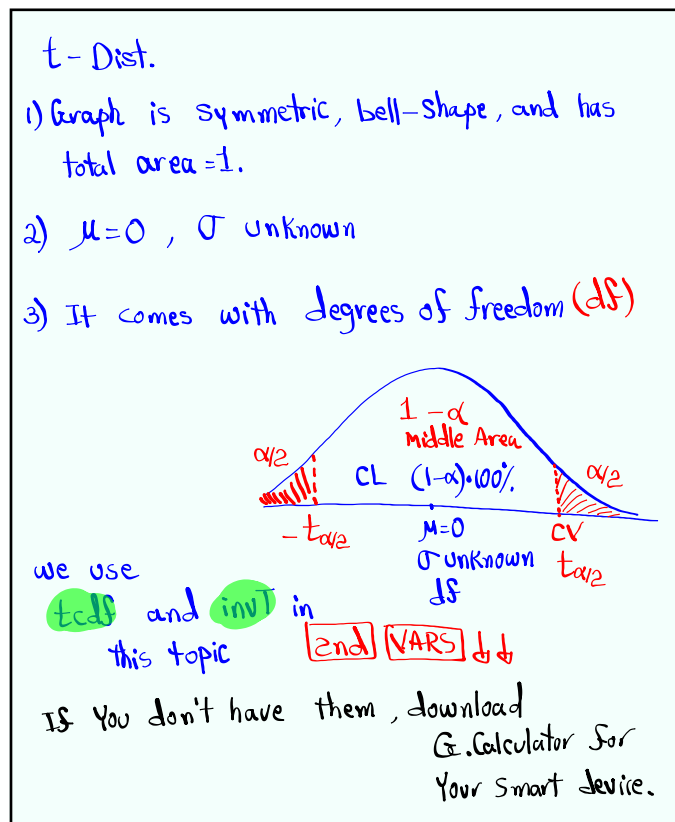 t - Dist.
1) Graph is symmetric, bell-shape, and has
total area = 1.
2) μ=0 , σ unknown
3) It comes with degrees of freedom (df)
1 - α
Middle Area
α/2
CL (1-α)·100%
α/2
-tα/2
μ=0
CV
σ unknown
tα/2
df
we use
tcdf and invT in
this topic
2nd VARS ↓↓
If you don't have them, download
G.Calculator for
Your smart device.